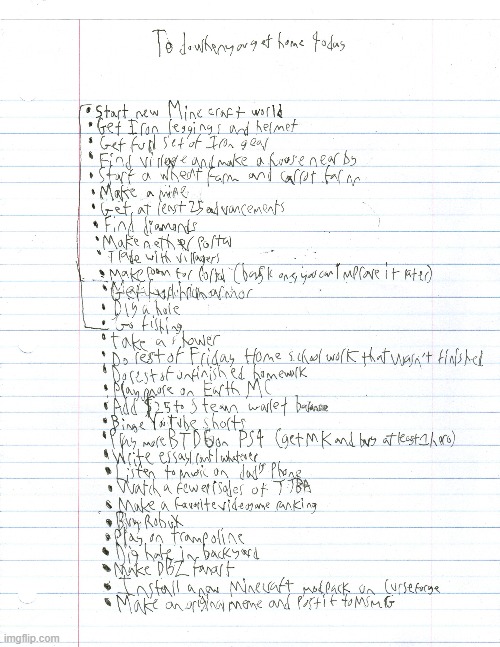 To do when you get home today
• Start new Minecraft world
• Get Iron leggings and helmet
• Get full set of Iron gear
• Find village and make a house nearby
• Start a wheat farm and carrot farm
• Make a mine
• Get at least 25 advancements
• Find diamonds
• Make nether portal
• Trade with villagers
• Make room for Portal (basic only, you can improve it later)
• Get full armor
• Dig a hole
• Go fishing
• Take a shower
• Do rest of Friday Home school work that wasn't finished
• Do rest of unfinished homework
• Play more on Earth MC
• Add $25 to Steam wallet balance
• Binge YouTube shorts
• Play more BTD6 on PS4 (get MK and buy at least 1 hero)
• Write essay/rant/whatever
• Listen to music on dad's Phone
• Watch a few episodes of JJBA
• Make a favorite videogame ranking
• Buy Robux
• Play on trampoline
• Dig hole in backyard
• Make DBZ fanart
• Install a new Minecraft modpack on Curseforge
• Make an original meme and Post it to MSMG
imgflip.com